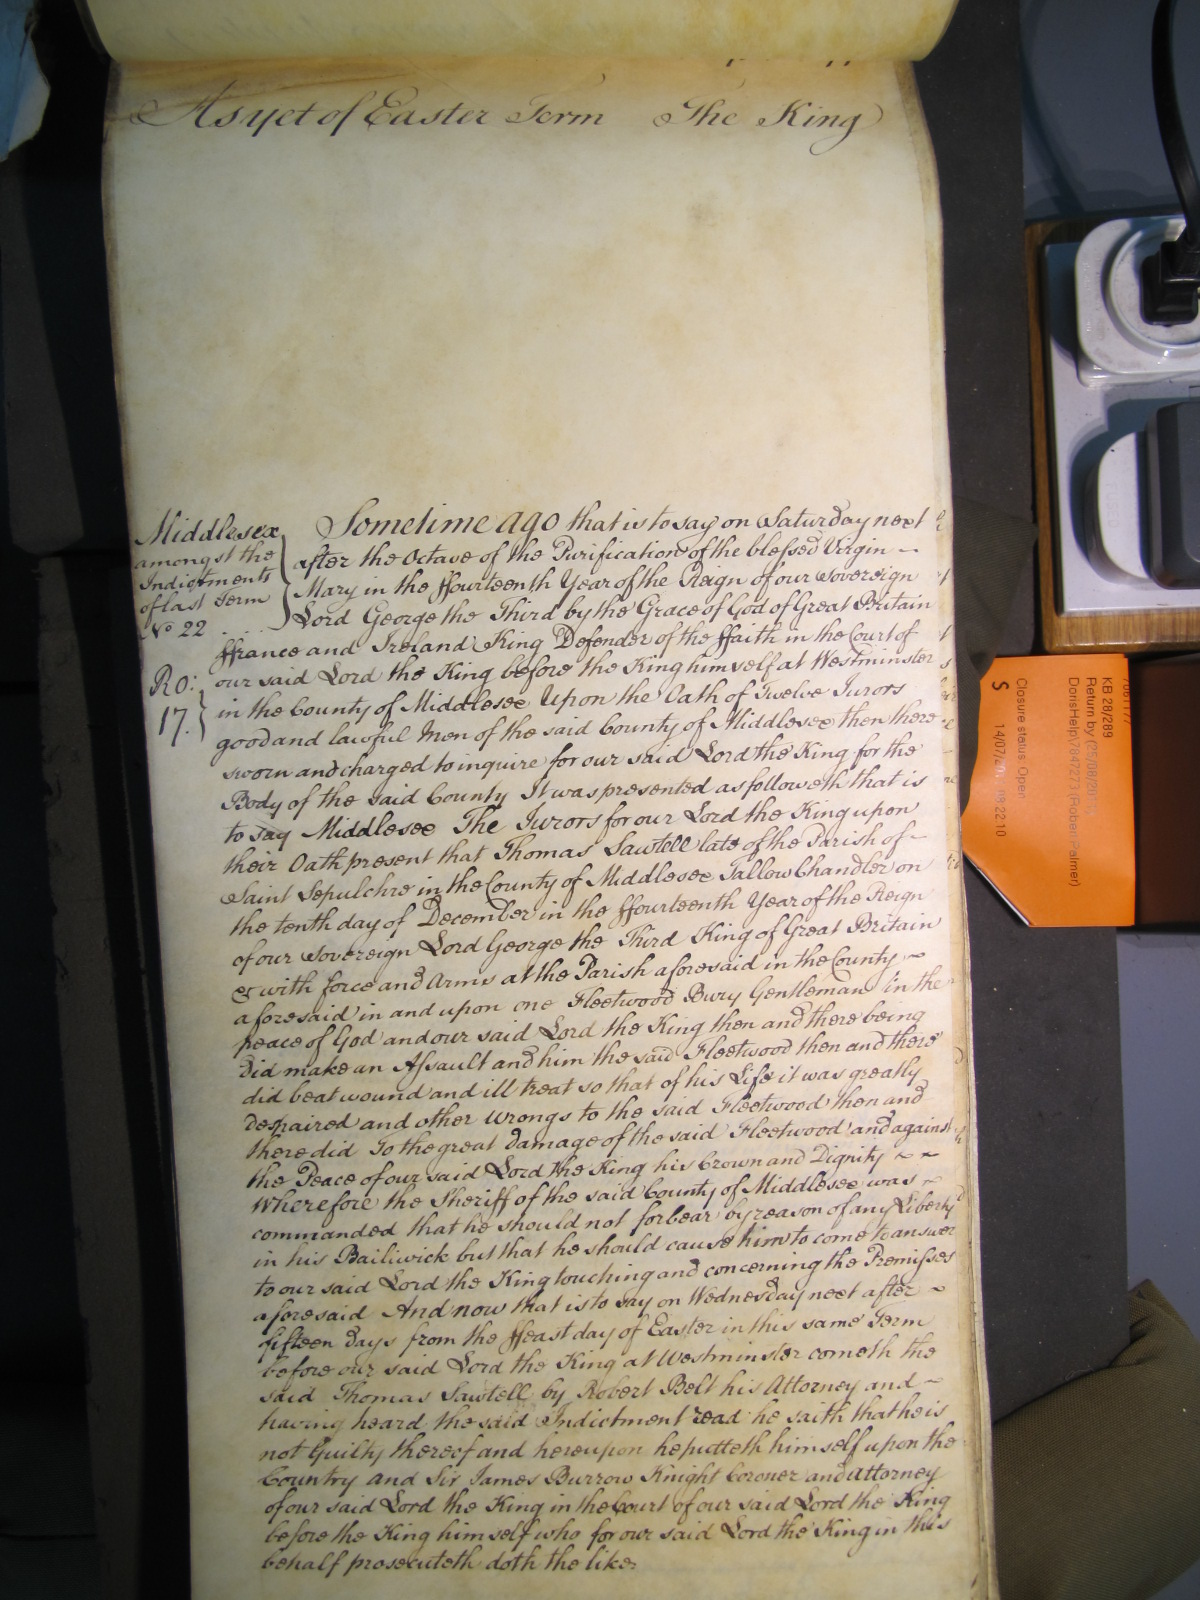 As yet of Easter Term The King
Middlesex
amongst the
Indictments
of last Term
No 22
Ro:
17.
Sometime ago that is to say on Saturday next
after the Octave of the Purification of the blessed Virgin
Mary in the ffourteenth Year of the Reign of our Sovereign
Lord George the Third by the Grace of God of Great Britain
ffrance and Ireland King Defender of the ffaith in the Court of
our said Lord the King before the King himself at Westminster
in the County of Middlesex Upon the Oath of Twelve Jurors
good and lawful Men of the said County of Middlesex then there
sworn and charged to inquire for our said Lord the King for the
Body of the said County It was presented as followeth that is
to say Middlesex The Jurors for our Lord the King upon
their Oath present that Thomas Sawtell late of the Parish of
Saint Sepulchre in the County of Middlesex Tallow Chandler on
the tenth day of December in the ffourteenth Year of the Reign
of our Sovereign Lord George the Third King of Great Britain
&c with force and Arms at the Parish aforesaid in the County
aforesaid in and upon one Fleetwood Bury Gentleman in the
peace of God and our said Lord the King then and there being
did make an Assault and him the said Fleetwood then and there
did beat wound and ill treat so that of his Life it was greatly
despaired and other wrongs to the said Fleetwood then and
there did To the great damage of the said Fleetwood and against
the Peace of our said Lord the King his Crown and Dignity
Wherefore the Sheriff of the said County of Middlesex was
commanded that he should not forbear by reason of any Liberty
in his Bailiwick but that he should cause him to come to answer
to our said Lord the King touching and concerning the Premisses
aforesaid And now that is to say on Wednesday next after
fifteen days from the ffeast day of Easter in this same Term
before our said Lord the King at Westminster cometh the
said Thomas Sawtell by Robert Belt his Attorney and
having heard the said Indictment read he saith that he is
not Guilty thereof and hereupon he putteth himself upon the
Country and Sir James Burrow Knight Coroner and Attorney
of our said Lord the King in the Court of our said Lord the King
before the King himself who for our said Lord the King in this
behalf prosecuteth doth the like
KB 28/289
Return by (25/08/2017)
DorisHelp\784727 (Robert Palmer)
Closure status Open
S 14/07/